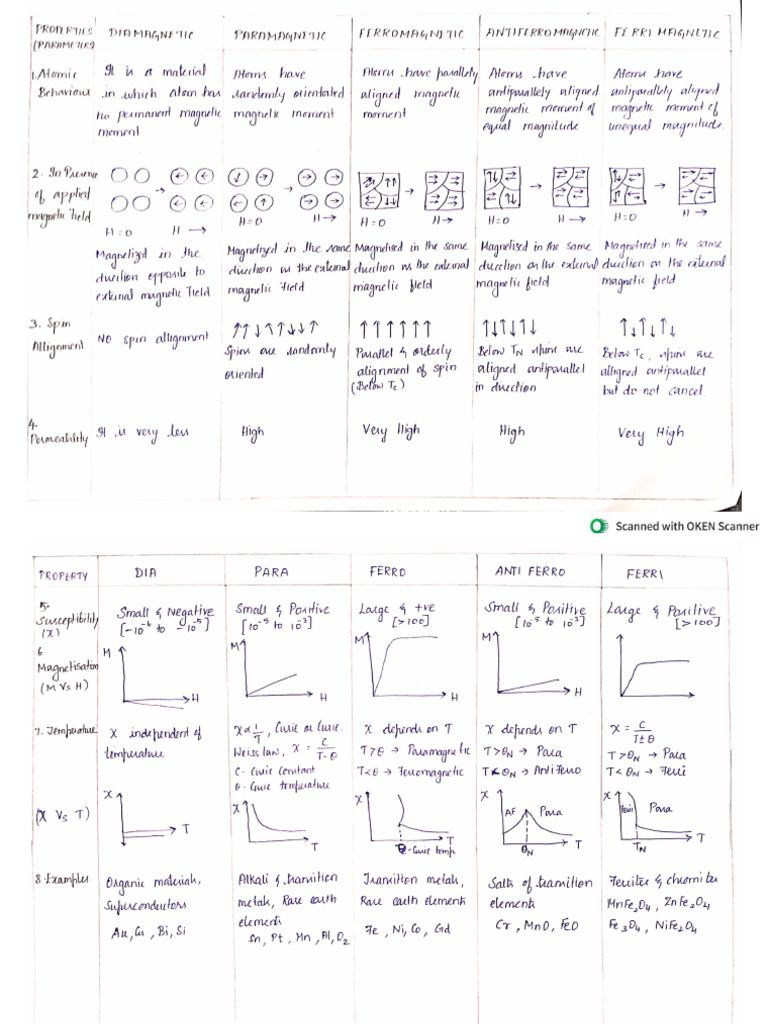 PROPERTIES
(PARAMETERS)
DIAMAGNETIC
PARAMAGNETIC
FERROMAGNETIC
ANTIFERROMAGNETIC
FERRI MAGNETIC
1. Atomic
Behaviour
It is a material
in which atom has
no permanent magnetic
moment
Atoms have
randomly orientated
magnetic moment
Atoms have parallely
aligned magnetic
moment
Atoms have
antiparallely aligned
magnetic moment of
equal magnitude
Atoms have
antiparallely aligned
magnetic moment of
unequal magnitude.
2. In Presence
of applied
magnetic field
H = 0 H →
Magnetized in the
direction opposite to
external magnetic field
H = 0 H →
Magnetized in the same
direction as the external
magnetic field
H = 0 H →
Magnetised in the same
direction as the external
magnetic field
H = 0 H →
Magnetised in the same
direction as the external
magnetic field
H = 0 H →
Magnetised in the same
direction as the external
magnetic field
3. Spin
Allignment
NO spin allignment
↑↑↓↑↓↓↑
Spins are randomly
oriented
↑↑↑↑↑↑
Parallel & orderly
alignment of spin
(Below Tc)
↑↓↑↓↑↓
Below TN spins are
aligned antiparallel
in direction
↑↓↑↓↑
Below Tc, spins are
alligned antiparallel
but do not cancel.
4.
Permeability
It is very less
High
Very High
High
Very High
Scanned with OKEN Scanner
PROPERTY
DIA
PARA
FERRO
ANTI FERRO
FERRI
5.
Susceptibility
(χ)
Small & Negative
[-10⁻⁶ to -10⁻⁵]
Small & Positive
[10⁻⁵ to 10⁻³]
Large & +ve
[>100]
Small & Positive
[10⁻⁵ to 10⁻³]
Large & Positive
[>100]
6
Magnetisation
(M Vs H)
M
H
M
H
M
H
M
H
7. Temperature
χ independent of
temperature
χ∝1/T, Curie or Curie.
Weiss law, χ = C/T-θ
C - Curie constant
θ - Curie temperature
χ depends on T
T>θ → Paramagnetic
T<θ → Ferromagnetic
χ depends on T
T>θN → Para
T<θN → Antiferro
χ = C/T±θ
T>θN → Para
T<θN → Ferri
(χ Vs T)
χ
T
χ
T
χ
T
θ - Curie temp.
χ
AF Para
θN
T
χ
Ferri Para
TN
T
8. Examples
Organic materials,
Superconductors
Au, Cu, Bi, Si
Alkali & transition
metals, Rare earth
elements
Sn, Pt, Mn, Al, O₂
Transition metals,
Rare earth elements
Fe, Ni, Co, Gd
Salts of transition
elements
Cr, MnO, FeO
Ferrites & chromites
MnFe₂O₄, ZnFe₂O₄
Fe₃O₄, NiFe₂O₄